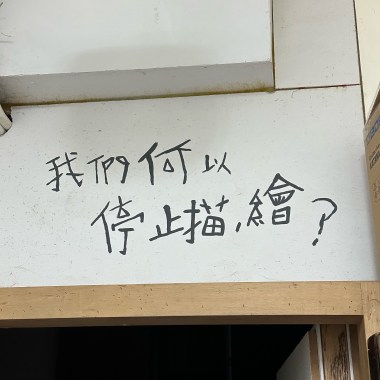 我們何以
停止描,繪?